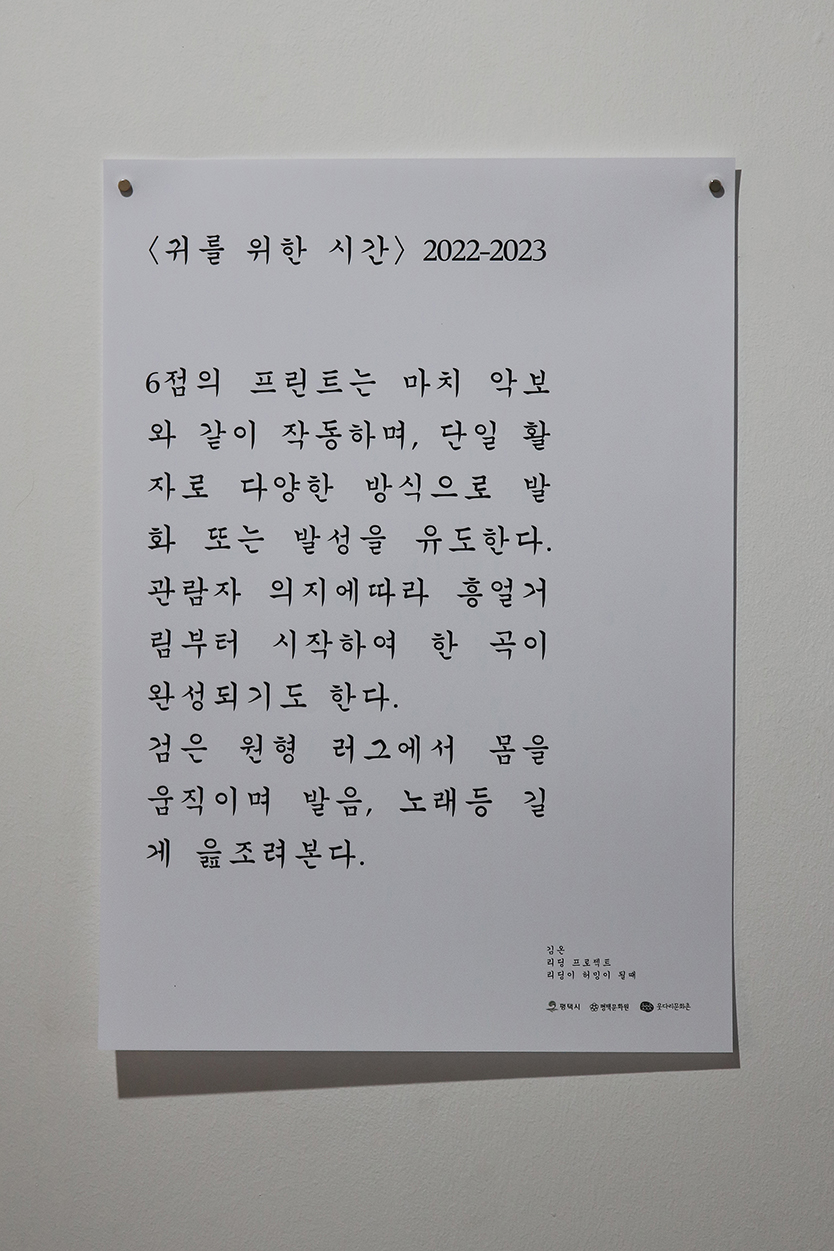 〈귀를 위한 시간〉 2022-2023
6점의 프린트는 마치 악보
와 같이 작동하며, 단일 활
자로 다양한 방식으로 발
화 또는 발성을 유도한다.
관람자 의지에따라 흥얼거
림부터 시작하여 한 곡이
완성되기도 한다.
검은 원형 러그에서 몸을
움직이며 발음, 노래등 길
게 읊조려본다.
김온
리딩 프로젝트
리딩이 허밍이 될때
평택시 평택문화원 웃다리문화촌